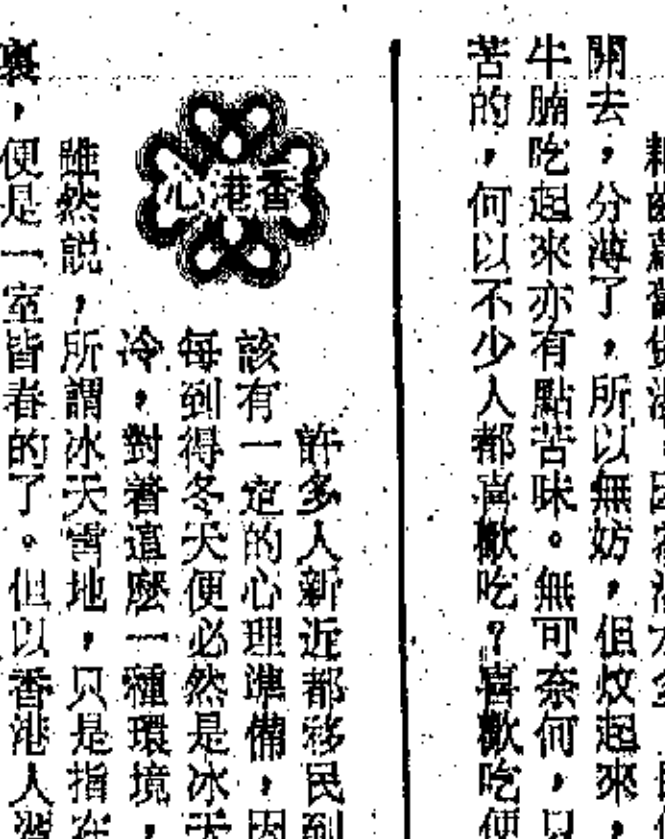 關去，分薄了，所以無妨，但炆起來，
牛腩吃起來亦有點苦味。無可奈何，只
苦的，何以不少人都喜歡吃？喜歡吃便
香港心
許多人新近都移民到
該有一定的心理準備，因
每到得冬天便必然是冰天
冷，對着這麼一種環境，
雖然說，所謂冰天雪地，只是指在
裏，便是一室皆春的了。但以香港人